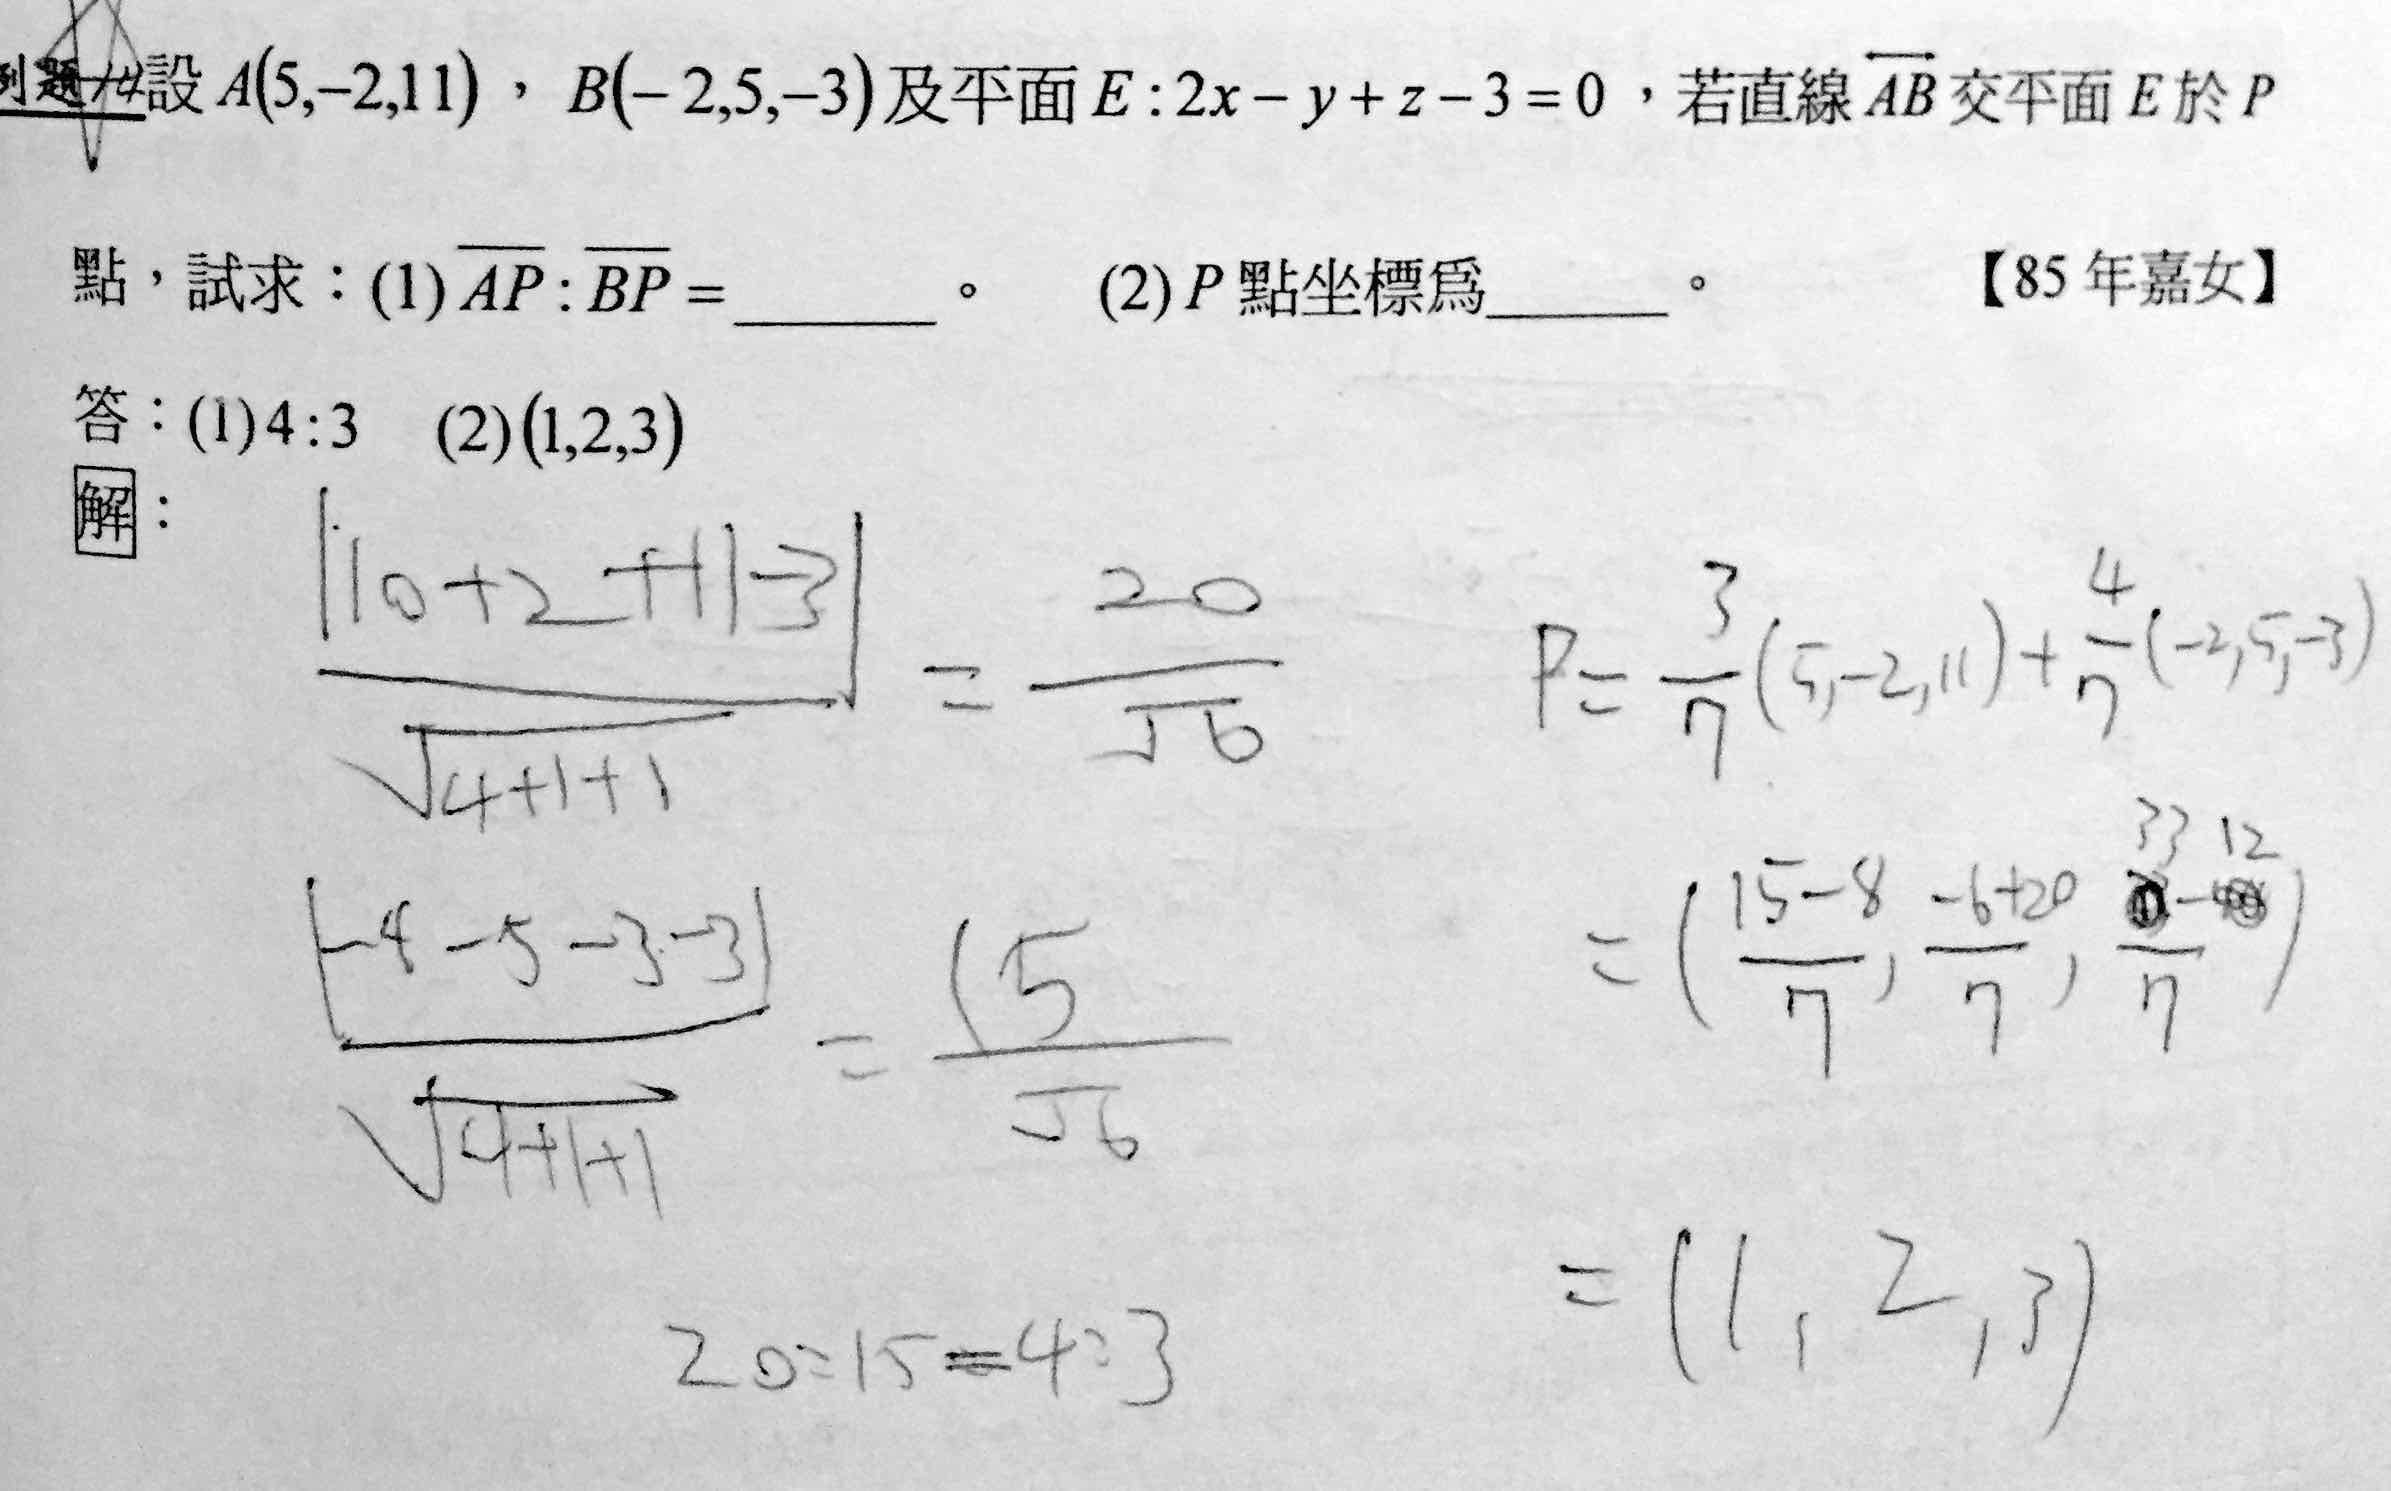 例題14設 A(5,−2,11) ， B(−2,5,−3) 及平面 E : 2x − y + z − 3 = 0 ，若直線 \overleftrightarrow{AB} 交平面 E 於 P
點，試求：(1) \overline{AP} : \overline{BP} = ______ 。 (2) P 點坐標爲______ 。 【85 年嘉女】
答：(1)4 : 3 (2)(1,2,3)
解：
|10+2+11−3| / √4+1+1 = 20 / √6
|−4−5−3−3| / √4+1+1 = 15 / √6
20:15=4:3
P= 3/7 (5,−2,11)+ 4/7 (−2,5,−3)
= ( 15−8 / 7 , −6+20 / 7 , 33−12 / 7 )
= (1, 2, 3)